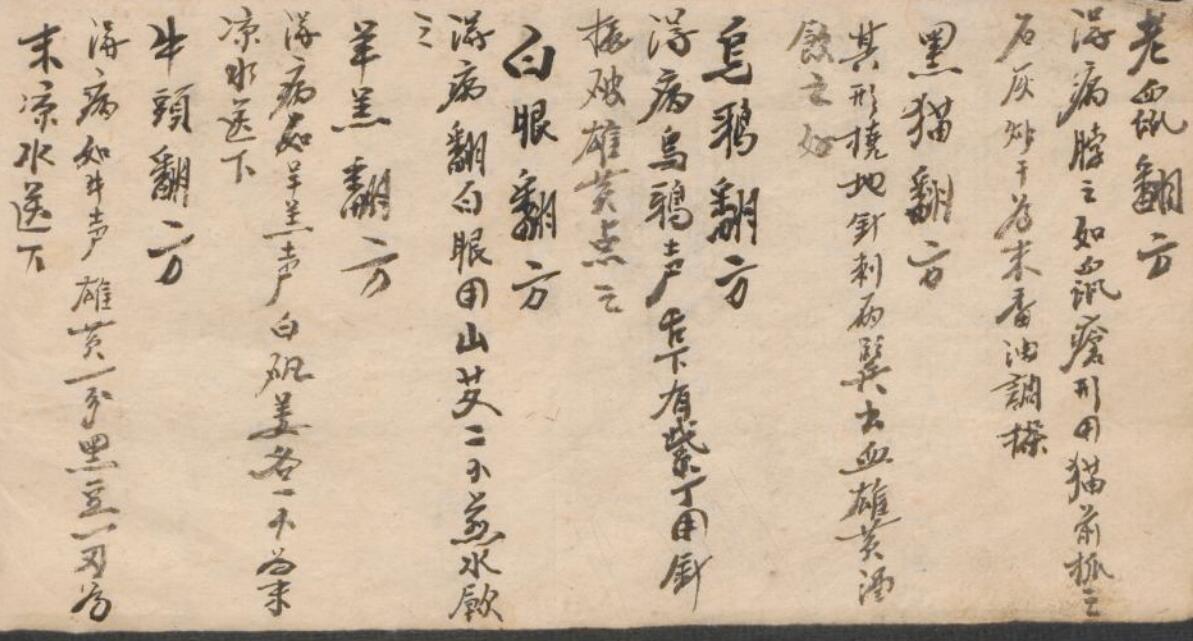 老鼠翻方
得病脖之如鼠瘡形用猫前抓之
石灰炒干为末香油調搽
黑猫翻方
其形撓地針刺两鬓出血雄黄酒
飲之好
烏鴉翻方
得病烏鴉声舌下有紫丁用針
破雄黄点之
白眼翻方
得病翻白眼用山艾二个煎水飲
之
羊羔翻方
得病如羊羔声白矾姜各一个为末
凉水送下
牛頭翻方
得病如牛声雄黄一分黑豆一为
末凉水送下